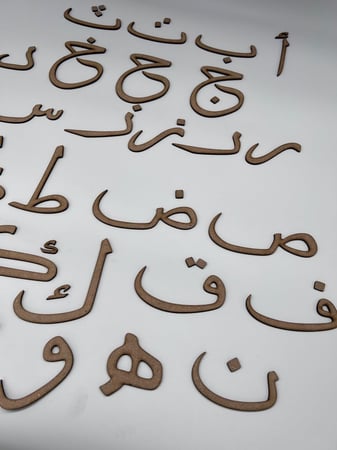 أ ب ت ث
ج ح خ د
ر ز س
ص ض ط
ف ق ل ك
ن ه و